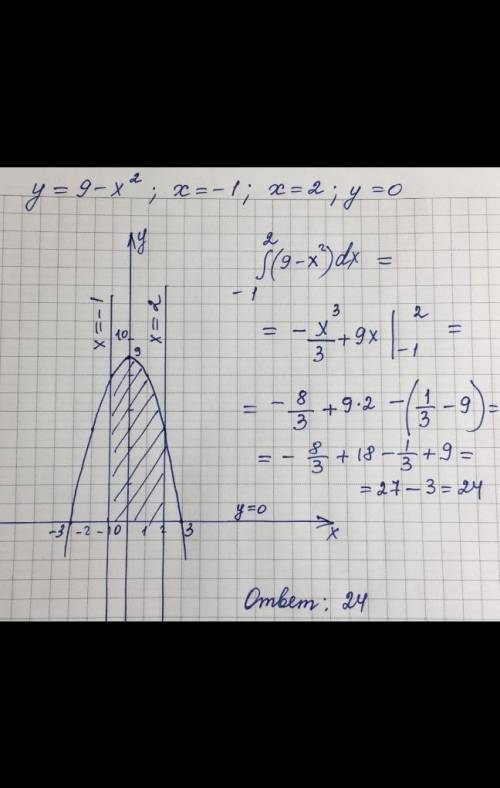 y = 9 - x²; x = -1; x = 2; y = 0
y
x = -1
x = 2
10
9
-3 -2 -1 0 1 2 3
y=0
x
∫₋₁² (9 - x²) dx =
= - x³/3 + 9x |₋₁² =
= - 8/3 + 9·2 - (1/3 - 9) =
= - 8/3 + 18 - 1/3 + 9 =
= 27 - 3 = 24
Ответ: 24